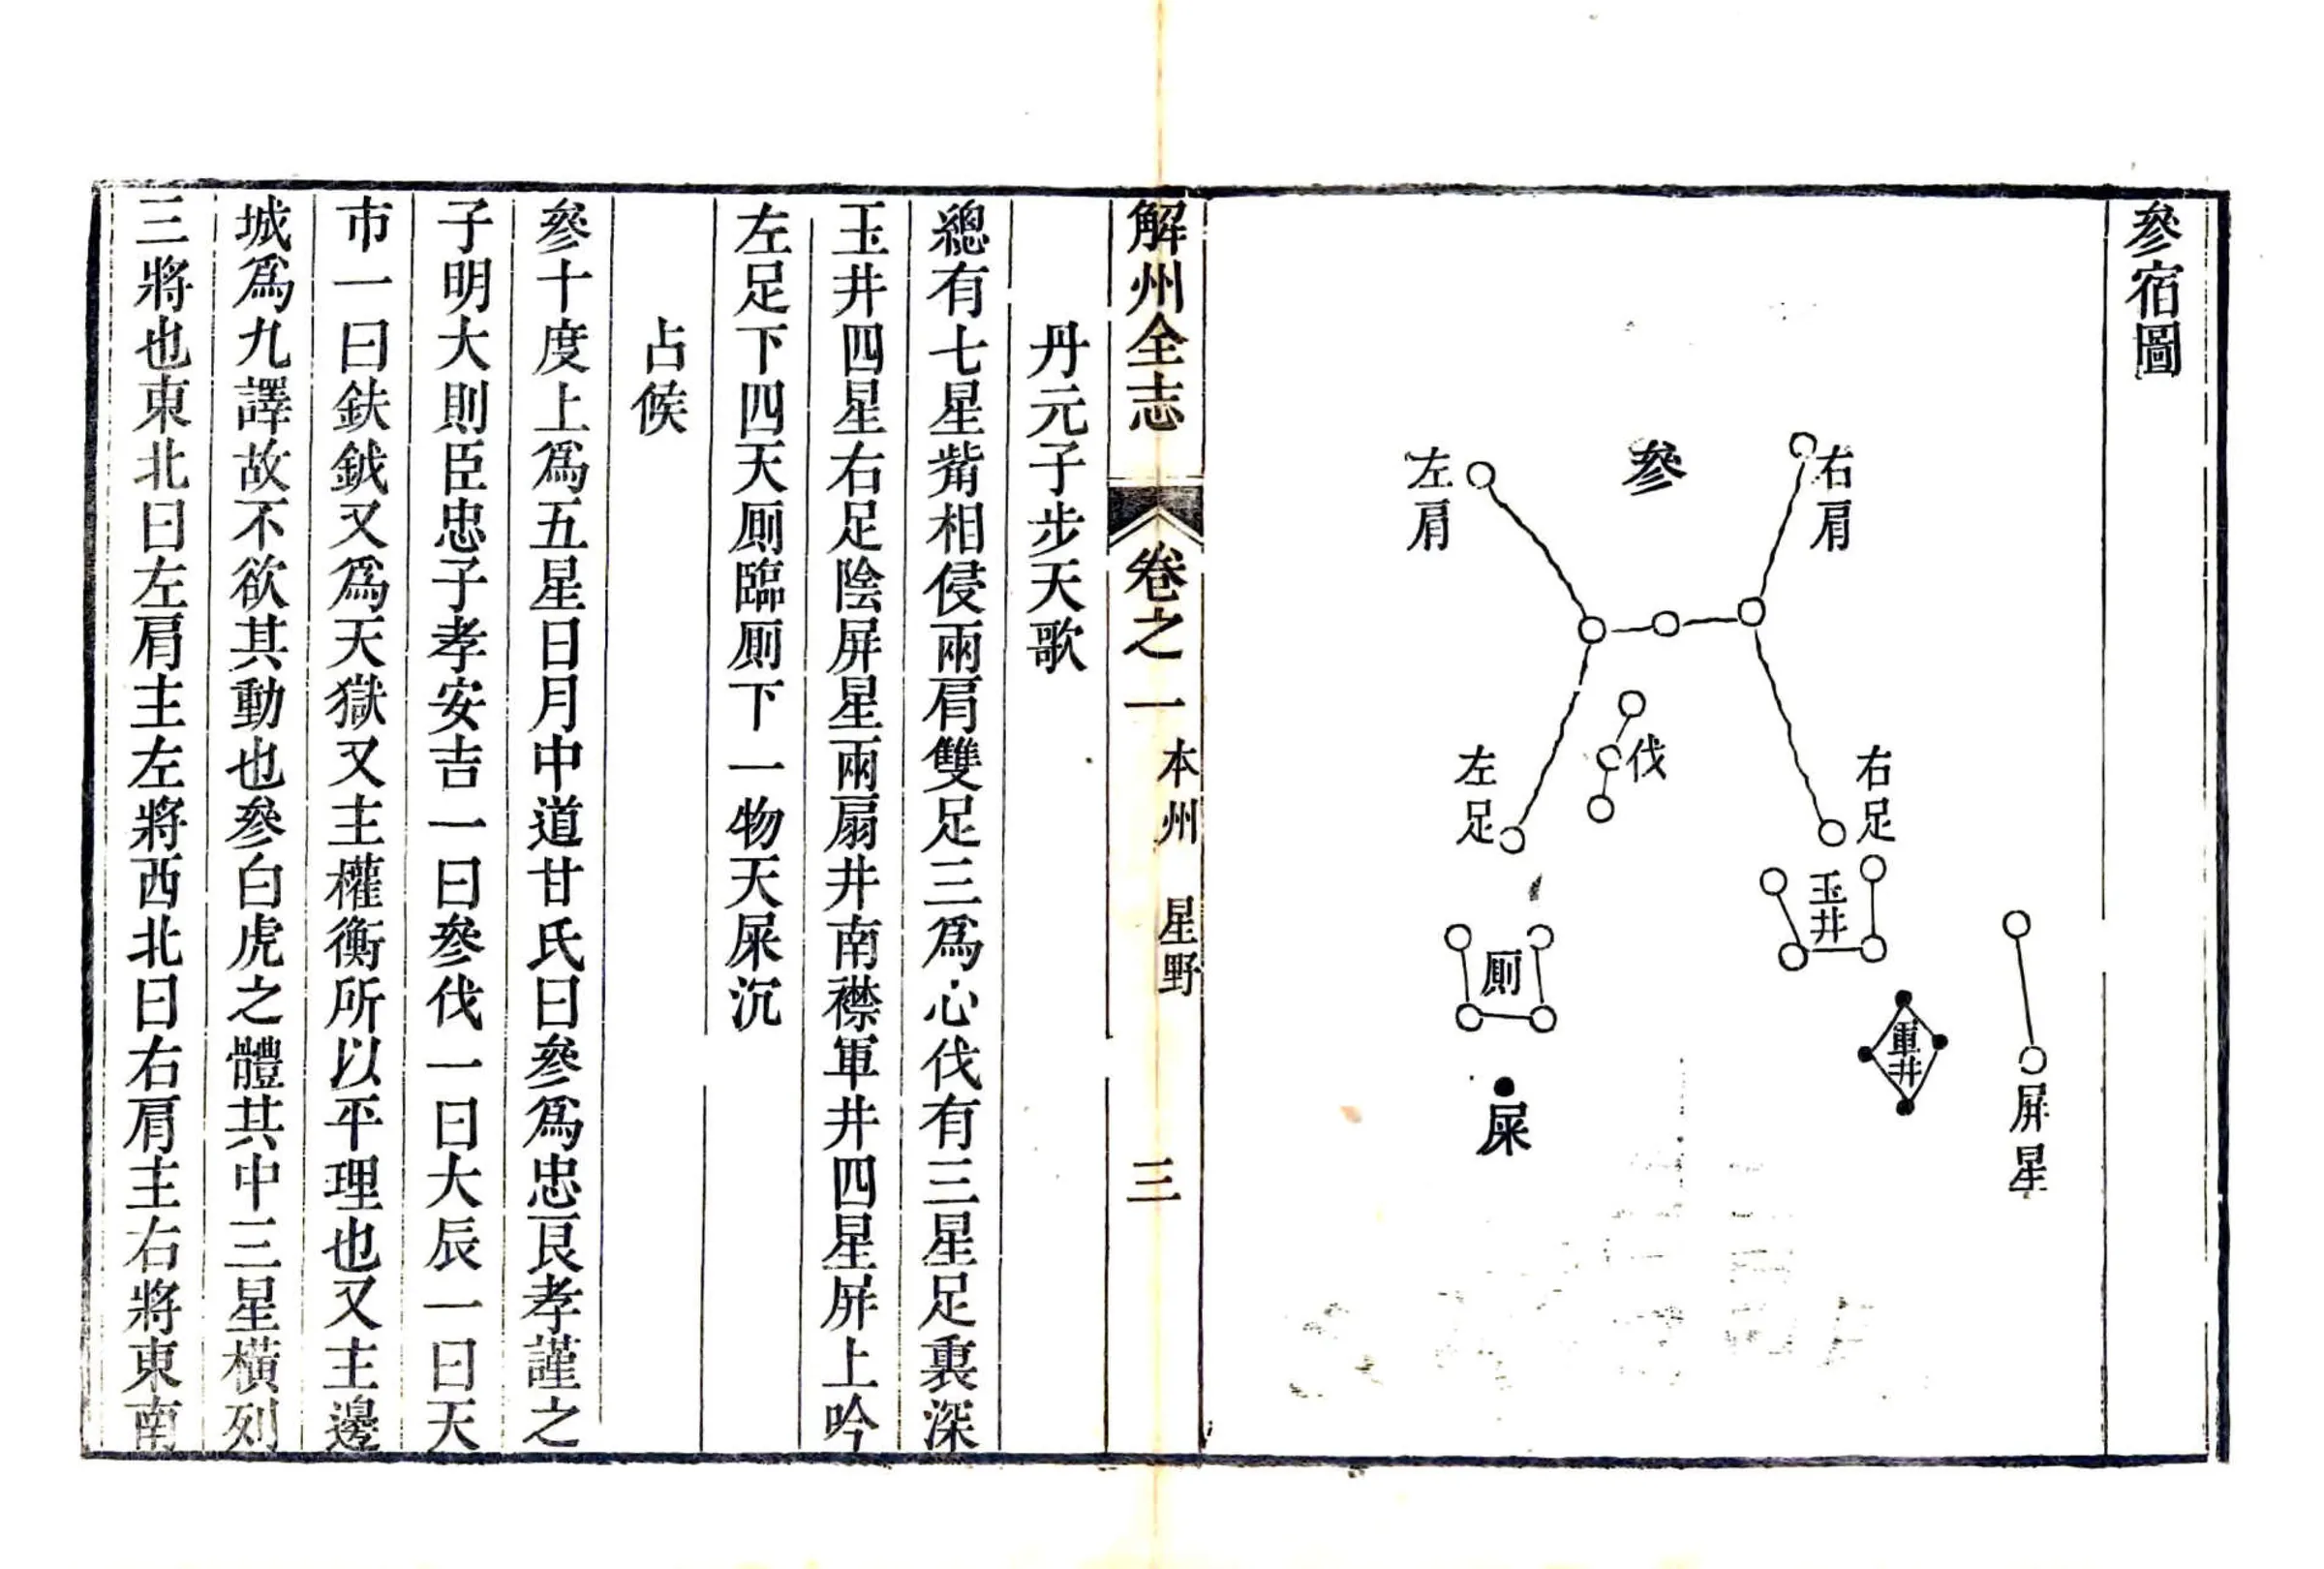 參宿圖
參
右肩
左肩
伐
右足
左足
玉井
廁
軍井
屏星
屎
解州全志
卷之一
本州 星野
三
丹元子步天歌
總有七星觜相侵兩肩雙足三爲心伐有三星足裏深
玉井四星右足陰屏星兩扇井南襟軍井四星屏上吟
左足下四天厠臨厠下一物天屎沉
占候
參十度上爲五星日月中道甘氏曰參爲忠良孝謹之
子明大則臣忠子孝安吉一曰參伐一曰大辰一曰天
市一曰鈇鉞又爲天獄又主權衡所以平理也又主邊
城爲九譯故不欲其動也參白虎之體其中三星橫列
三將也東北曰左肩主左將西北曰右肩主右將東南